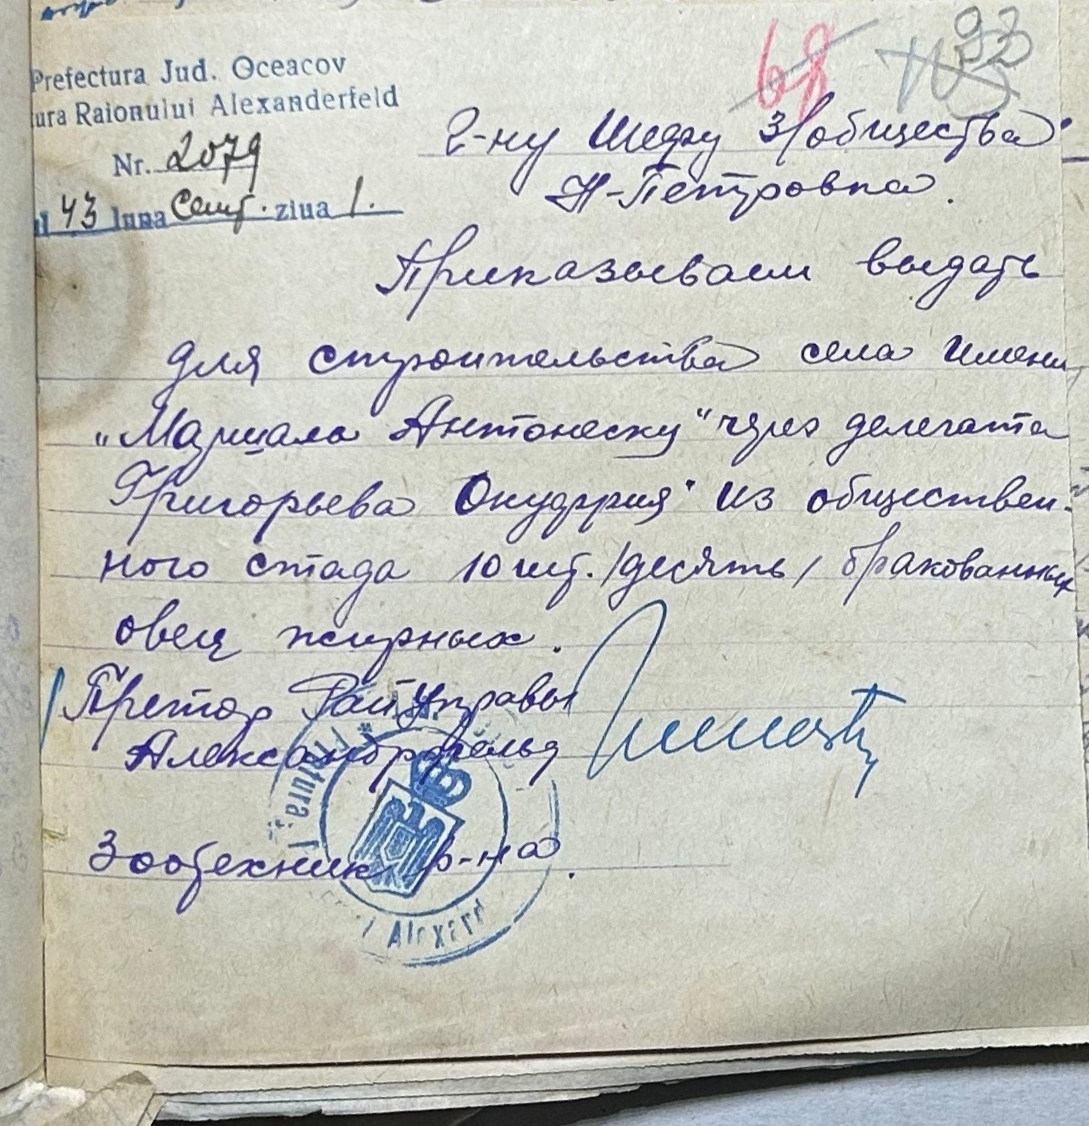 Prefectura Jud. Oceacov
ura Raionului Alexanderfeld
Nr. 2079
l 43 luna Сент. ziua 1.
68 93
Г-ну Шефу З/общества
Н-Петровка.
Приказываем выдать
для строительства села имени
„Маршала Антонеску" через делегата
Григорьева из обществен-
ного стада 10 шт. /десять/ бракованных
овец жирных.
Претор Райуправы
Александрфельд
Зоотехник р-на.
Alexand